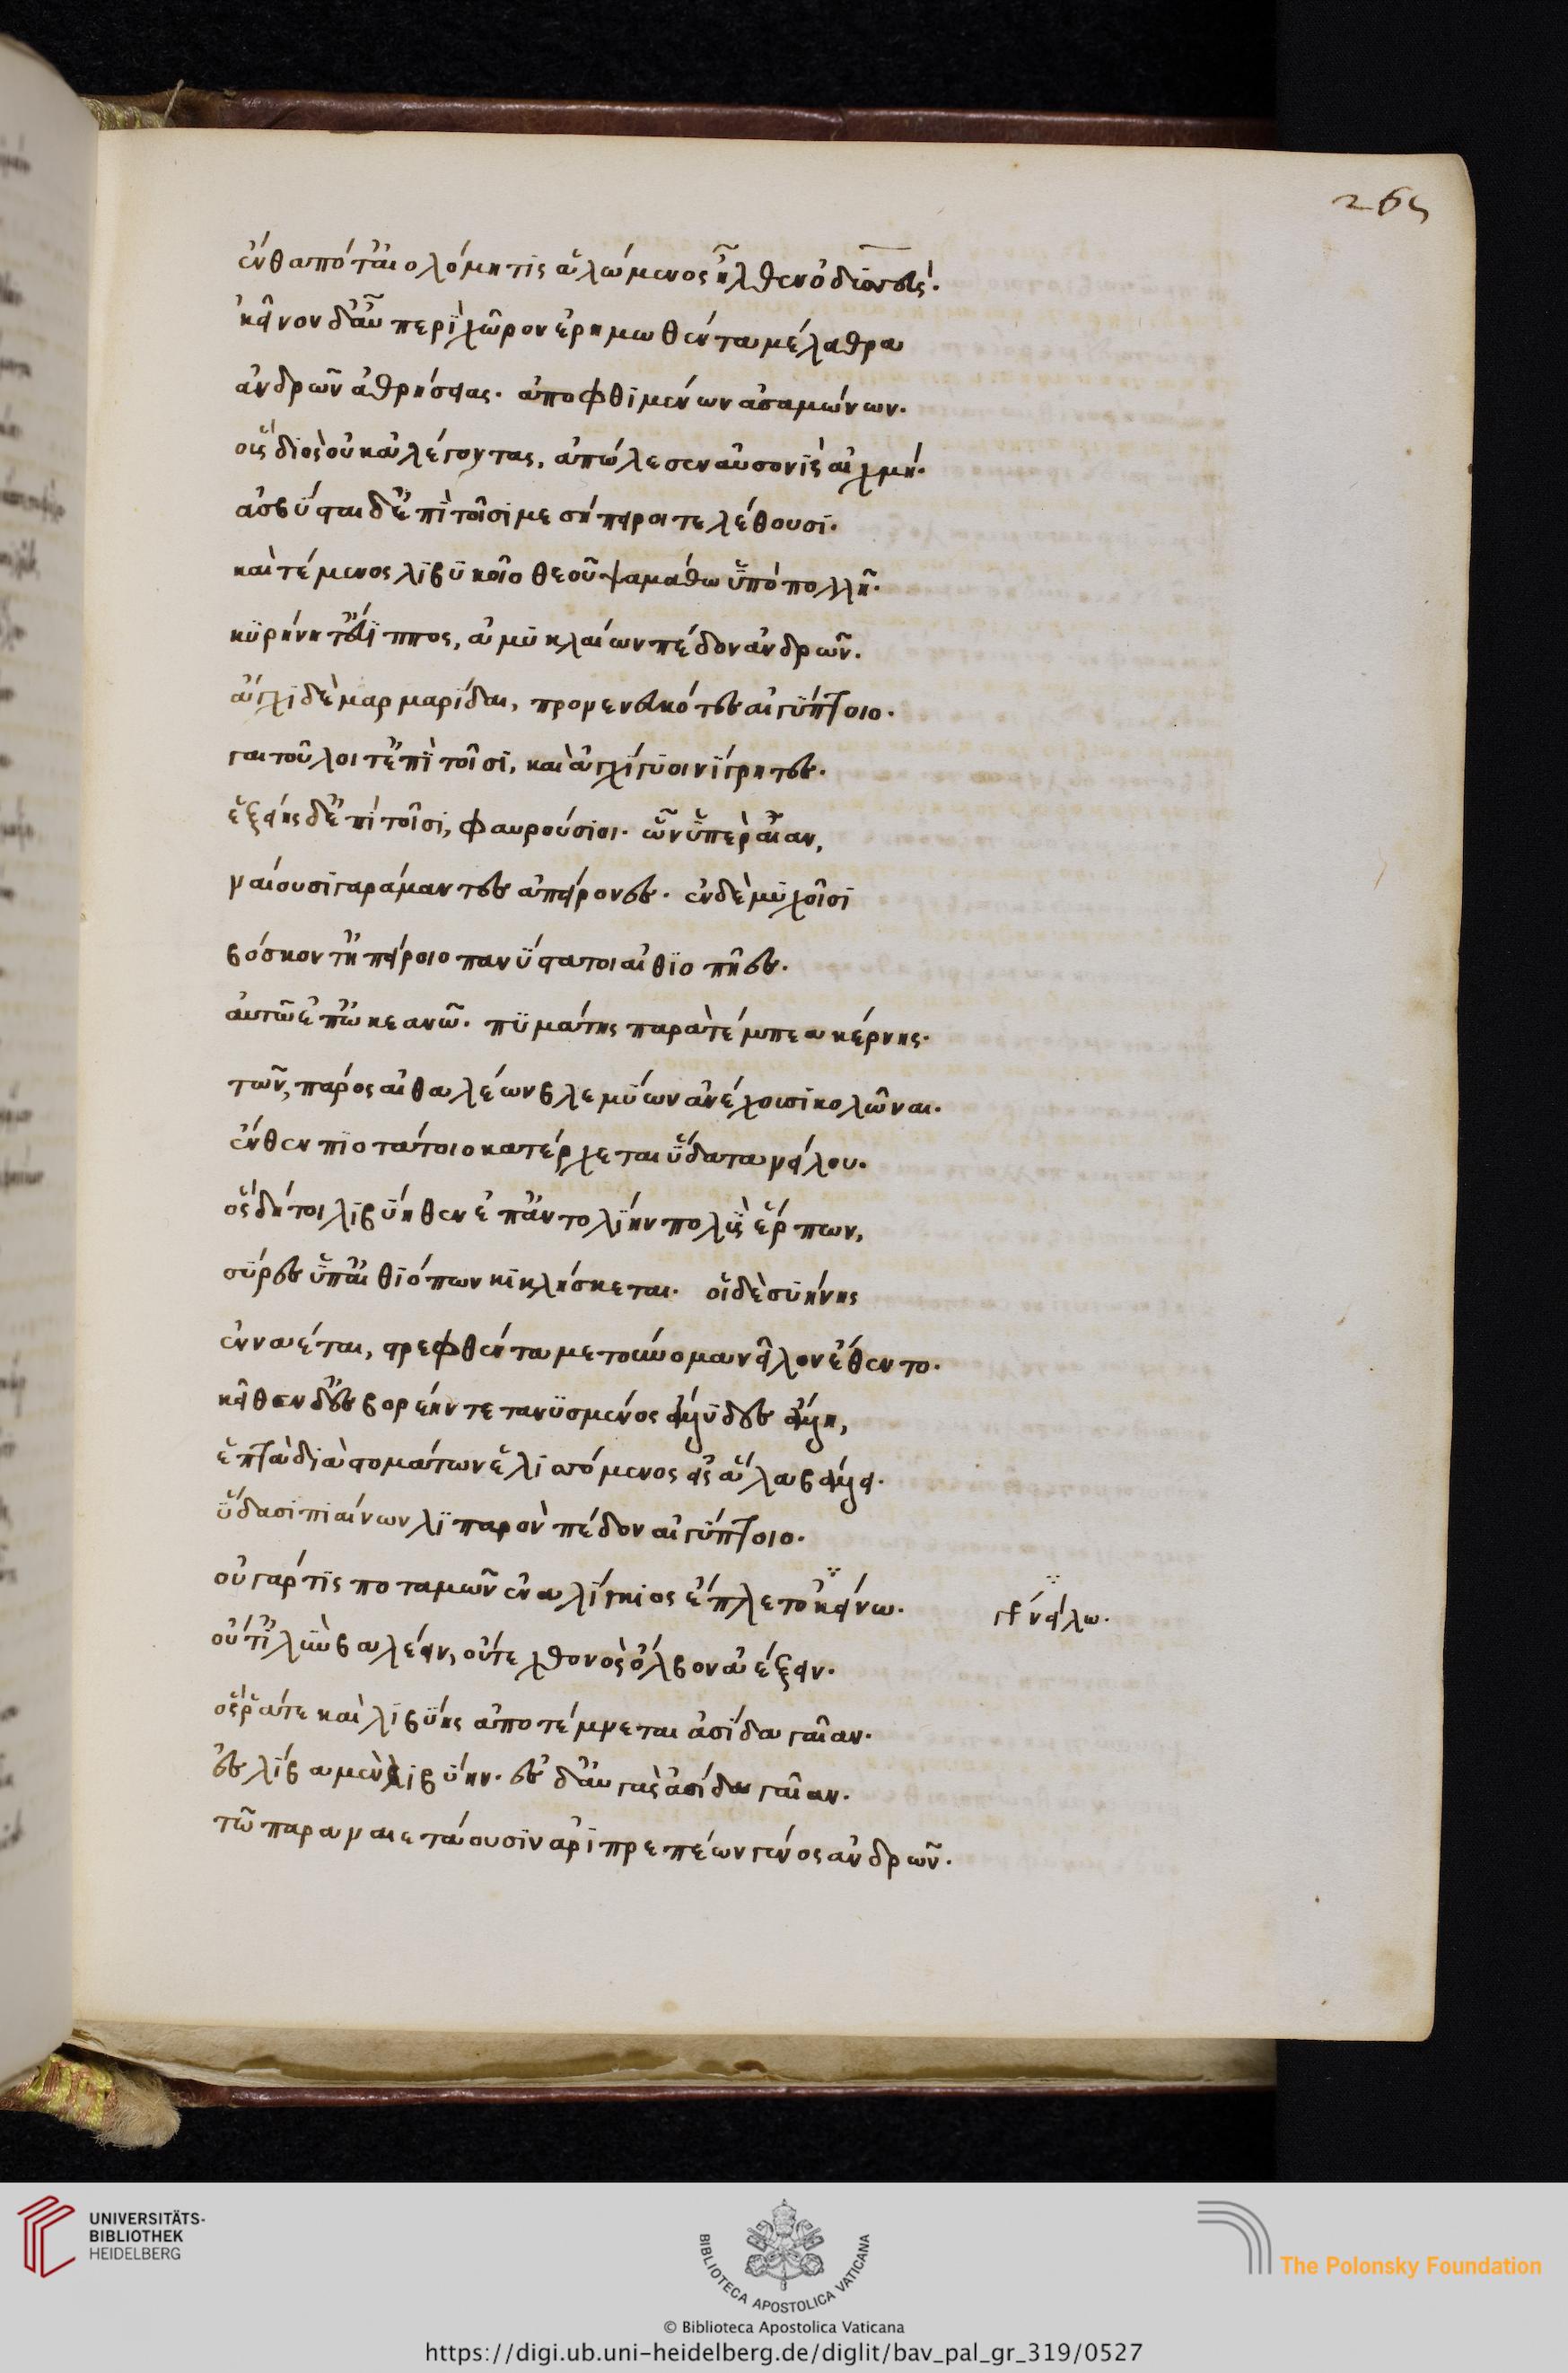 ἔνθα ποτ' αἰολόμητις ἀλώμενος ἦλθεν ὀδυσσεύς.
κεῖνον δ' αὖ περὶ χῶρον ἐρημωθέντα μέλαθρα
ἀνδρῶν ἀθρήσειας. ἀποφθιμένων ἀσαμώνων.
οὓς διὸς οὐκ ἀλέγοντας, ἀπώλεσεν αὐσονὶς αἰχμή.
ἀσβύσται δ' ἐπὶ τοῖσι μεσήπειροι τελέθουσι.
καὶ τέμενος λιβυκοῖο θεοῦ ψαμάθω ὑπὸ πολλῆ.
κυρήνη τ' εὔιππος, ἀμυκλαίων πέδον ἀνδρῶν.
ἄγχι δὲ μαρμαρίδαι, προνενευκότες αἰγύπτοιο.
γαιτοῦλοι τ' ἐπὶ τοῖσι, καὶ ἀγχίγυοι νίγρητες.
ἑξείης δ' ἐπὶ τοῖσι, φαυρούσιοι. ὧν ὑπὲρ αἶαν,
ναίουσι γαράμαντες ἀπείρονες. ἐν δὲ μυχοῖσι
βόσκοντ' ἠπείροιο πανύστατοι αἰθιοπῆες.
αὐτῶ ἐπ' ὠκεανῶ. πυμάτης παρὰ τέμπεα κέρνης.
τῶν, πάρος αἰθαλέων βλεμύων ἀνέχουσι κολῶναι.
ἔνθεν πιοτάτοιο κατέρχεται ὕδατα νείλου.
ὃς δή τοι λιβύηθεν ἐπ' ἀντολίην πολὺς ἕρπων,
σύρις ὑπ' αἰθιόπων κικλήσκεται. οἱ δὲ συήνης
ἐνναέται, στρεφθέντα μετ' οὔνομα νεῖλον ἔθεντο.
κεῖθεν δ' ἐς βορέην τετανυσμένος ἄλλυδις ἄλλη,
ἑπτὰ διὰ στομάτων ἑλισσόμενος εἰς ἅλα βάλλει.
ὕδασι πιαίνων λιπαρὸν πέδον αἰγύπτοιο.
οὐ γάρ τις ποταμῶν ἐναλίγκιος ἔπλετο κείνω. γρ νείλω.
οὔτ' ἰλὺν βαλέειν, οὔτε χθονὸς ὄλβον ἀέξειν.
ὅς ῥά τε καὶ λιβύης ἀποτέμνεται ἀσίδα γαῖαν.
ἐς λίβα μὲν λιβύην. ἐς δ' αὐγὰς ἀσίδα γαῖαν.
τῶ παραναιετάουσιν ἀριπρεπέων γένος ἀνδρῶν.
265
UNIVERSITÄTS-
BIBLIOTHEK
HEIDELBERG
BIBLIOTECA APOSTOLICA VATICANA
The Polonsky Foundation
© Biblioteca Apostolica Vaticana
https://digi.ub.uni-heidelberg.de/diglit/bav_pal_gr_319/0527